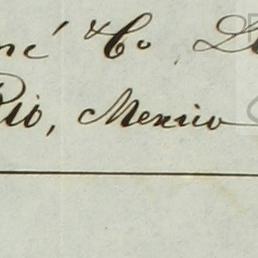 né & Co. D
Rio, Mexico